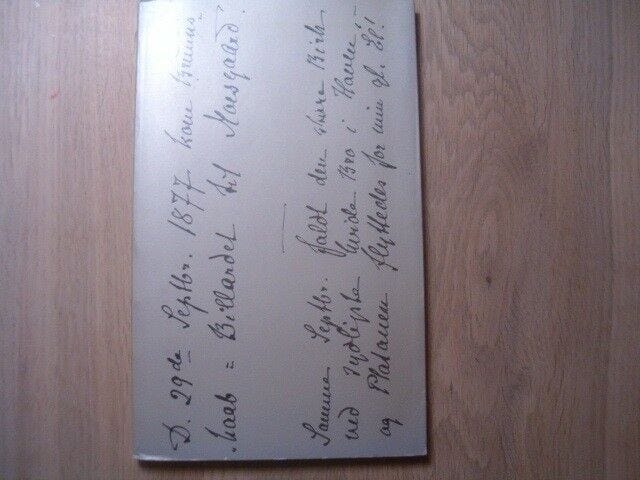 D. 29de Septbr. 1877 kom Brunns-
haab = Billardet til Moesgaard.
Samme Septbr. faldt den store Birk
ved sydligste hvide Bro i Haven; -
og Platanen flyttedes for min gl. Td!